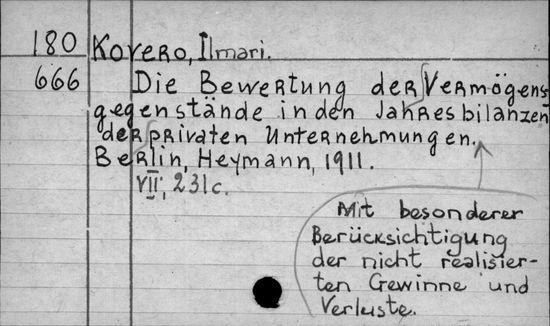 180 Kovero, Ilmari.
666 Die Bewertung der Vermögens
gegenstände in den Jahresbilanzen
der privaten Unternehmungen.
Berlin, Heymann, 1911.
VII, 231c.
Mit besonderer
Berücksichtigung
der nicht realisier-
ten Gewinne und
Verluste.